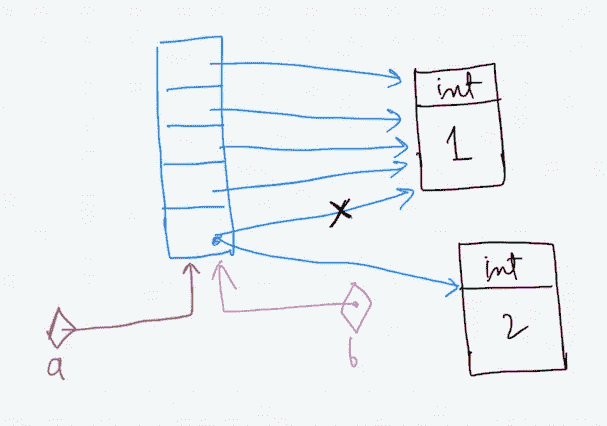 int
1
int
2
a
b